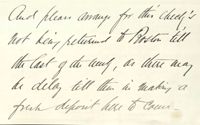 And please arrange for this chest's
not being returned to Boston till
the last of the week, as there may
be delay till then in making a
fresh deposit here to cover.